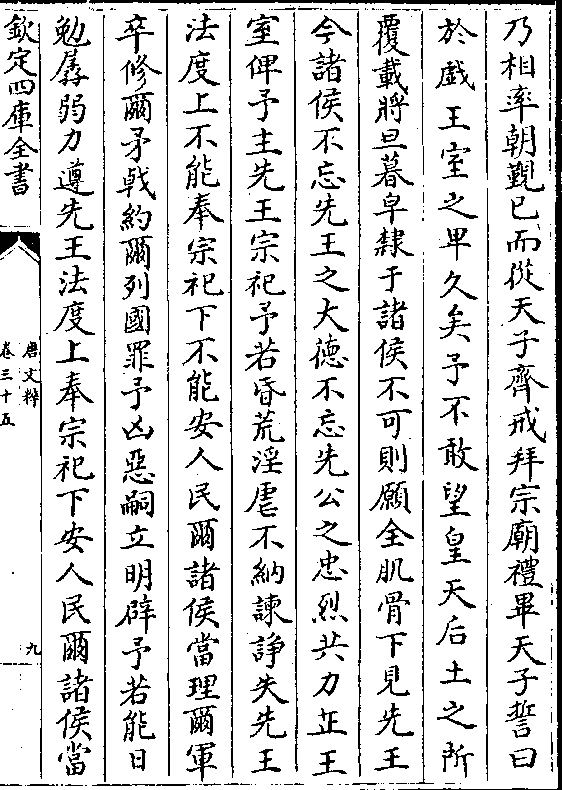 乃相率朝覲已而從天子齊戒拜宗廟禮畢天子誓曰
於戲王室之卑久矣予不敢望皇天后土之所
覆載將旦暮皁隸于諸侯不可則願全肌骨下見先王
今諸侯不忘先王之大德不忘先公之忠烈共力正王
室俾予主先王宗祀予若昏荒淫虐不納諫諍失先王
法度上不能奉宗祀下不能安人民爾諸侯當理爾軍
卒修爾矛戟約爾列國罪予凶惡嗣立明辟予若能日
勉孱弱力遵先王法度上奉宗祀下安人民爾諸侯當
欽定四庫全書
唐文粹
卷三十五
九